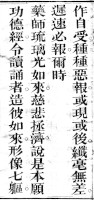 作自受種種惡報或現或後纖毫無差
遲速必報爾時
藥師琉璃光如來慈悲拯濟說是本願
功德經令讀誦者造彼如來形像七軀